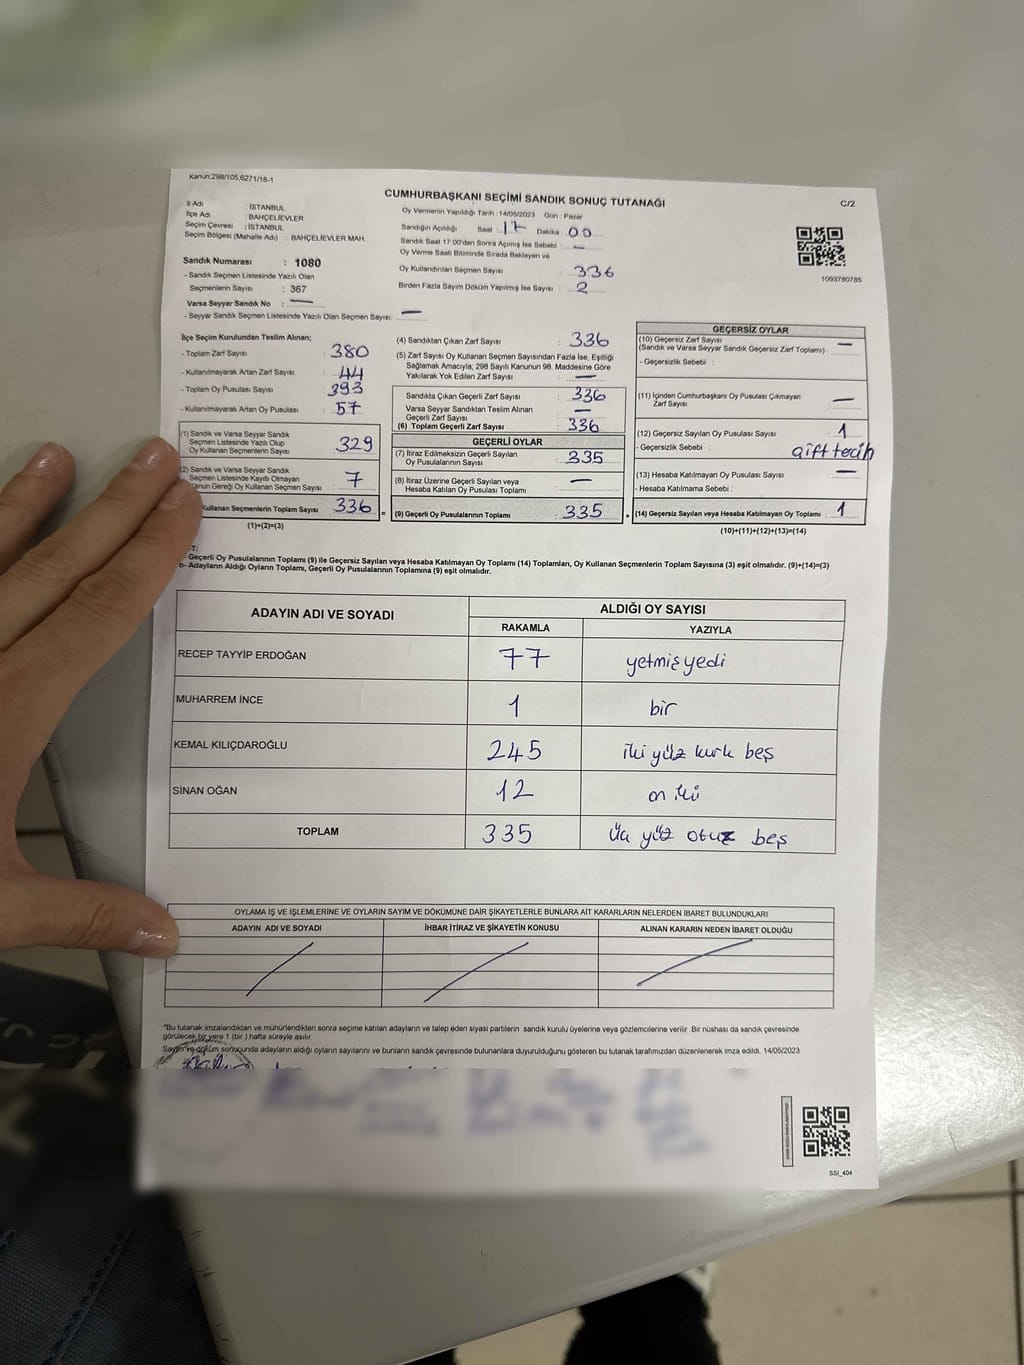 Kanun:298/105,6271/18-1
CUMHURBAŞKANI SEÇİMİ SANDIK SONUÇ TUTANAĞI
C/2
İl Adı : İSTANBUL
İlçe Adı : BAHÇELİEVLER
Seçim Çevresi : İSTANBUL
Seçim Bölgesi (Mahalle Adı) : BAHÇELİEVLER MAH.
Sandık Numarası : 1080
- Sandık Seçmen Listesinde Yazılı Olan
Seçmenlerin Sayısı : 367
Varsa Seyyar Sandık No : —
- Seyyar Sandık Seçmen Listesinde Yazılı Olan Seçmen Sayısı: —
Oy Vermenin Yapıldığı Tarih : 14/05/2023 Gün : Pazar
Sandığın Açıldığı Saat 17 Dakika : 00
Sandık Saat 17.00'den Sonra Açılmış İse Sebebi : —
Oy Verme Saati Bitiminde Sırada Bekleyen ve
Oy Kullandırılan Seçmen Sayısı : 336
Birden Fazla Sayım Döküm Yapılmış İse Sayısı : 2
1093780785
İlçe Seçim Kurulundan Teslim Alınan;
- Toplam Zarf Sayısı : 380
- Kullanılmayarak Artan Zarf Sayısı : 44
- Toplam Oy Pusulası Sayısı : 393
- Kullanılmayarak Artan Oy Pusulası : 57
(1) Sandık ve Varsa Seyyar Sandık
Seçmen Listesinde Yazılı Olup
Oy Kullanan Seçmenlerin Sayısı : 329
(2) Sandık ve Varsa Seyyar Sandık
Seçmen Listesinde Kayıtlı Olmayan
Kanun Gereği Oy Kullanan Seçmen Sayısı : 7
Kullanan Seçmenlerin Toplam Sayısı : 336
(1)+(2)=(3)
(4) Sandıktan Çıkan Zarf Sayısı : 336
(5) Zarf Sayısı Oy Kullanan Seçmen Sayısından Fazla İse, Eşitliği
Sağlamak Amacıyla; 298 Sayılı Kanunun 98. Maddesine Göre
Yakılarak Yok Edilen Zarf Sayısı : —
Sandıkta Çıkan Geçerli Zarf Sayısı : 336
Varsa Seyyar Sandıktan Teslim Alınan
Geçerli Zarf Sayısı : —
(6) Toplam Geçerli Zarf Sayısı : 336
GEÇERLİ OYLAR
(7) İtiraz Edilmeksizin Geçerli Sayılan
Oy Pusulalarının Sayısı : 335
(8) İtiraz Üzerine Geçerli Sayılan veya
Hesaba Katılan Oy Pusulası Toplamı : —
(9) Geçerli Oy Pusulalarının Toplamı : 335
GEÇERSİZ OYLAR
(10) Geçersiz Zarf Sayısı
(Sandık ve Varsa Seyyar Sandık Geçersiz Zarf Toplamı) : —
- Geçersizlik Sebebi :
(11) İçinden Cumhurbaşkanı Oy Pusulası Çıkmayan
Zarf Sayısı : —
(12) Geçersiz Sayılan Oy Pusulası Sayısı : 1
- Geçersizlik Sebebi : çift tecih
(13) Hesaba Katılmayan Oy Pusulası Sayısı : —
- Hesaba Katılmama Sebebi :
(14) Geçersiz Sayılan veya Hesaba Katılmayan Oy Toplamı : 1
(10)+(11)+(12)+(13)=(14)
Geçerli Oy Pusulalarının Toplamı (9) ile Geçersiz Sayılan veya Hesaba Katılmayan Oy Toplamı (14) Toplamları, Oy Kullanan Seçmenlerin Toplam Sayısına (3) eşit olmalıdır. (9)+(14)=(3)
b- Adayların Aldığı Oyların Toplamı, Geçerli Oy Pusulalarının Toplamına (9) eşit olmalıdır.
ADAYIN ADI VE SOYADI
ALDIĞI OY SAYISI
RAKAMLA YAZIYLA
RECEP TAYYİP ERDOĞAN 77 yetmiş yedi
MUHARREM İNCE 1 bir
KEMAL KILIÇDAROĞLU 245 iki yüz kırk beş
SİNAN OĞAN 12 on iki
TOPLAM 335 Üç yüz otuz beş
OYLAMA İŞ VE İŞLEMLERİNE VE OYLARIN SAYIM VE DÖKÜMÜNE DAİR ŞİKAYETLERLE BUNLARA AİT KARARLARIN NELERDEN İBARET BULUNDUKLARI
ADAYIN ADI VE SOYADI İHBAR İTİRAZ VE ŞİKAYETİN KONUSU ALINAN KARARIN NEDEN İBARET OLDUĞU
*Bu tutanak imzalandıktan ve mühürlendikten sonra seçime katılan adayların ve talep eden siyasi partilerin sandık kurulu üyelerine veya gözlemcilerine verilir. Bir nüshası da sandık çevresinde
görülecek bir yere 1 (bir) hafta süreyle asılır.
Sayım ve döküm sonucunda adayların aldığı oyların sayılarını ve bunların sandık çevresinde bulunanlara duyurulduğunu gösteren bu tutanak tarafımızdan düzenlenerek imza edildi. 14/05/2023
SSI_404